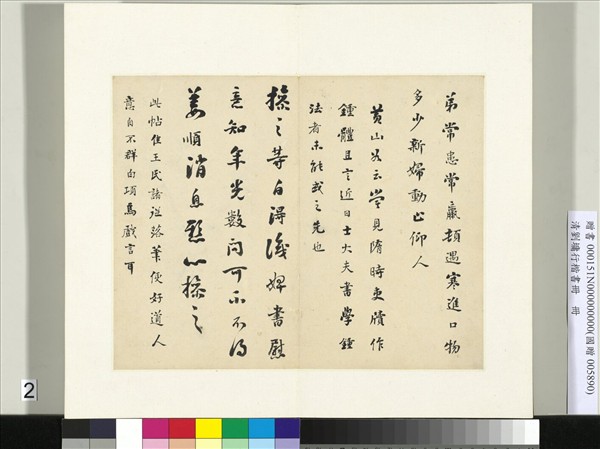 弟常患常羸頓遇寒進口物
多少新婦動止仰人
黃山谷云嘗見隋時吏牘作
鍾體且言近日士大夫書學鍾
法者未能或之先也
操之等白得識婢書慰
意知年光數問可不不得
姜順消息懸心操之
此帖在王氏諸從落筆便好道人
意自不群白項烏戲言耳
贈書 000151N000000000(國贈 005890)
清劉墉行楷書冊 冊
2